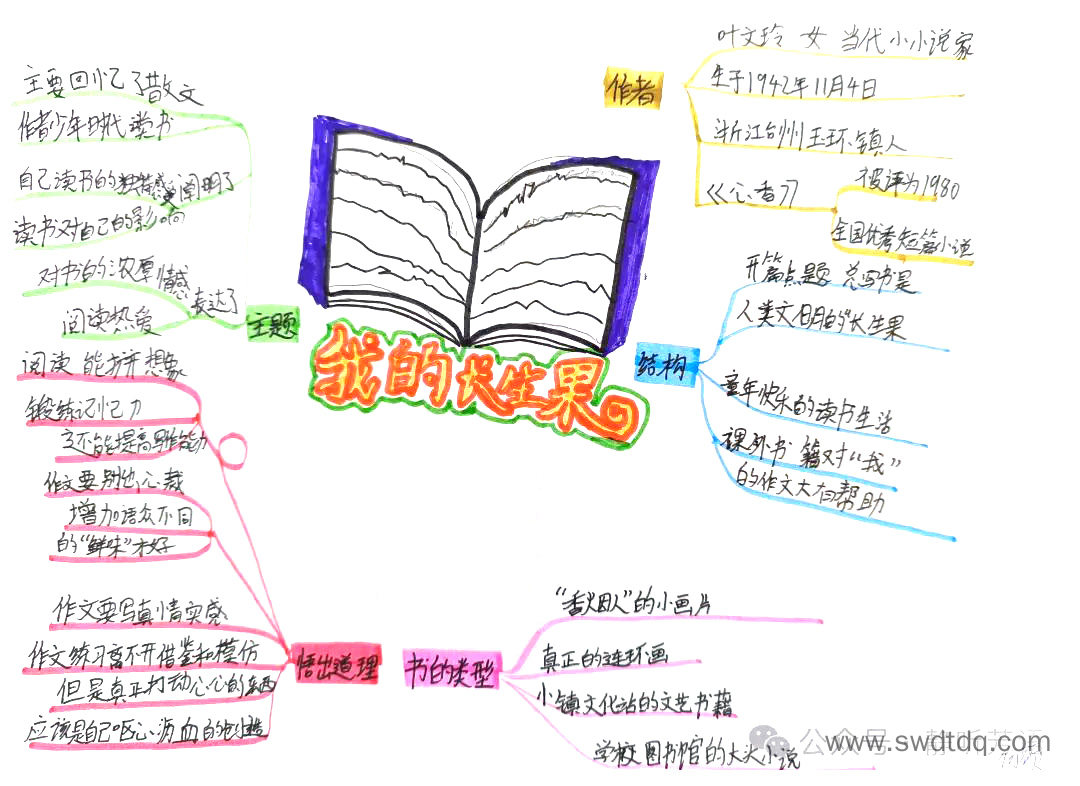 我的长生果
作者
叶文玲 女 当代小小说家
生于1942年11月4日
浙江台州玉环镇人
《心香》
被评为1980
全国优秀短篇小说
结构
开篇点题 总写书是
人类文明的"长生果
童年快乐的读书生活
课外书籍对"我"
的作文大有帮助
书的类型
"香烟人"的小画片
真正的连环画
小镇文化站的文艺书籍
学校图书馆的大大小说
悟出道理
阅读 能拼想象
锻炼记忆力
还能提高写作能力
作文要别出心裁
增加语众不同
的"鲜味"才好
作文要写真情实感
作文练习离不开借鉴和模仿
但是真正打动心心的东西
应该是自己呕心沥血的创造
主题
主要回忆了散文
作者少年时代读书
自己读书的独特感受阐明了
读书对自己的影响
对书的浓厚情感
表达了
阅读热爱
公众号
www.swdtdq.com